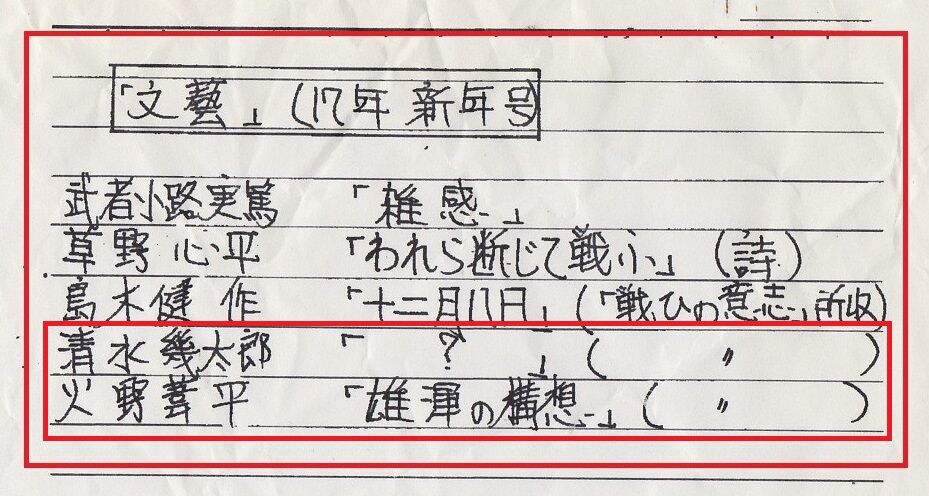 「文藝」(17年 新年号)
武者小路実篤 「雑感」
草野心平 「われら断じて戦ふ」(詩)
島木健作 「十二月八日」(「戦ひの意志」所収)
清水幾太郎 「 ? 」( 〃 )
火野葦平 「雄渾の構想」( 〃 )